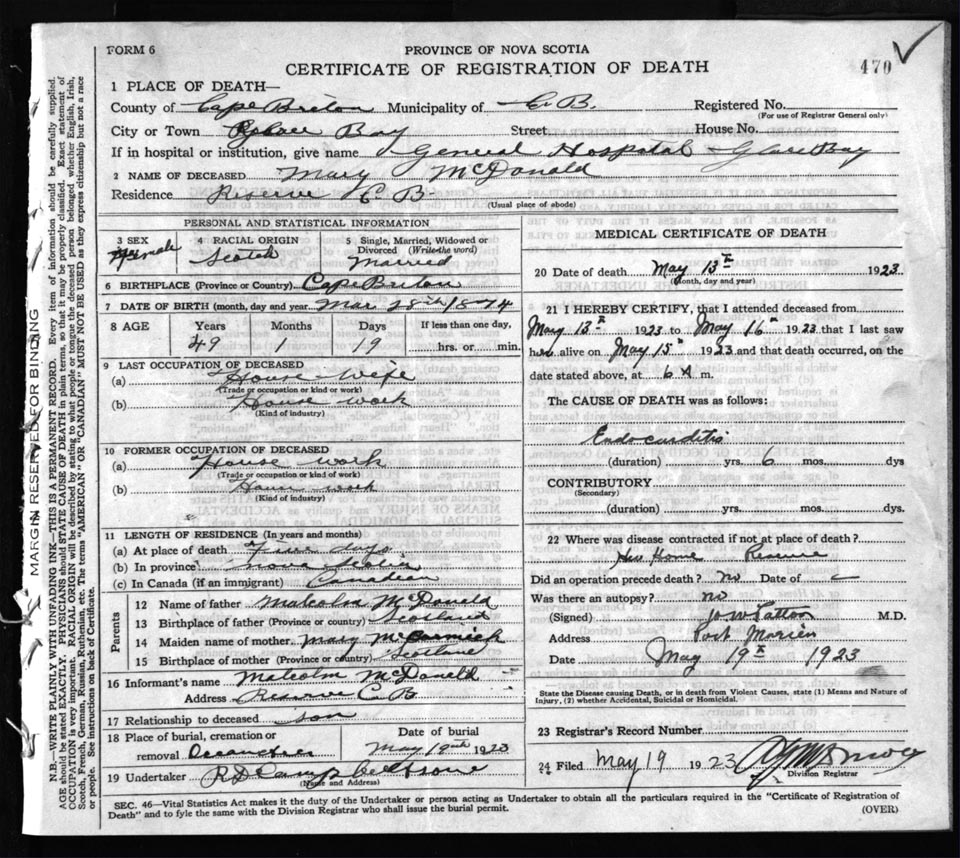 FORM 6
PROVINCE OF NOVA SCOTIA
CERTIFICATE OF REGISTRATION OF DEATH
470
1 PLACE OF DEATH—
County of Cape Breton Municipality of C. B. Registered No.
(For use of Registrar General only)
City or Town Glace Bay Street House No.
If in hospital or institution, give name General Hospital Glace Bay
2 NAME OF DECEASED Mary McDonald
Residence Reserve C B
(Usual place of abode)
PERSONAL AND STATISTICAL INFORMATION
3 SEX Female
4 RACIAL ORIGIN Scotch
5 Single, Married, Widowed or Divorced (Write the word) Married
6 BIRTHPLACE (Province or Country) Cape Breton
7 DATE OF BIRTH (month, day and year) Mar. 28th 1874
8 AGE Years Months Days If less than one day,
49 1 19 hrs. or min.
9 LAST OCCUPATION OF DECEASED
(a) House wife
(Trade or occupation or kind or work)
(b) House work
(Kind of industry)
10 FORMER OCCUPATION OF DECEASED
(a) House work
(Trade or occupation or kind or work)
(b) House work
(Kind of industry)
11 LENGTH OF RESIDENCE (In years and months)
(a) At place of death days
(b) In province Nova Scotia
(c) In Canada (if an immigrant) Canadian
Parents
12 Name of father Malcolm McDonald
13 Birthplace of father (Province or country) Scotland
14 Maiden name of mother Mary McCormick
15 Birthplace of mother (Province or country) Scotland
16 Informant's name Malcolm McDonald
Address Reserve C. B.
17 Relationship to deceased son
18 Place of burial, cremation or removal Date of burial
May 19th 1923
19 Undertaker R D Campbell
(Name and Address)
MEDICAL CERTIFICATE OF DEATH
20 Date of death May 15th 1923
(Month, day and year)
21 I HEREBY CERTIFY, that I attended deceased from
May 13th 1923 to May 16th 1923 that I last saw
her alive on May 15th 1923 and that death occurred, on the
date stated above, at 6 A m.
The CAUSE OF DEATH was as follows:
Endocarditis
(duration) yrs. 6 mos. dys
CONTRIBUTORY
(Secondary)
(duration) yrs. mos. dys.
22 Where was disease contracted if not at place of death?
Her Home Reserve
Did an operation precede death? no Date of
Was there an autopsy? no
(Signed) M.D.
Address Port Morien
Date May 19th 1923
State the Disease causing Death, or in death from Violent Causes, state (1) Means and Nature of
Injury, (2) whether Accidental, Suicidal or Homicidal.
23 Registrar's Record Number
24 Filed May 19 1923
Division Registrar
SEC. 46—Vital Statistics Act makes it the duty of the Undertaker or person acting as Undertaker to obtain all the particulars required in the "Certificate of Registration of
Death" and to fyle the same with the Division Registrar who shall issue the burial permit.
(OVER)
MARGIN RESERVED FOR BINDING
N.B.—WRITE PLAINLY WITH UNFADING INK—THIS IS A PERMANENT RECORD. Every item of information should be carefully supplied.
AGE should be stated EXACTLY. PHYSICIANS should STATE CAUSE OF DEATH in plain terms, so that it may be properly classified. Exact statement of
OCCUPATION is very important. RACIAL ORIGIN will be described by stating to what people or tongue the deceased person belonged whether English, Irish,
Scotch, French, German, Russian, Ruthenian, etc. The terms "AMERICAN" or "CANADIAN" MUST NOT BE USED as they express citizenship but not a race
or people. See instructions on back of Certificate.